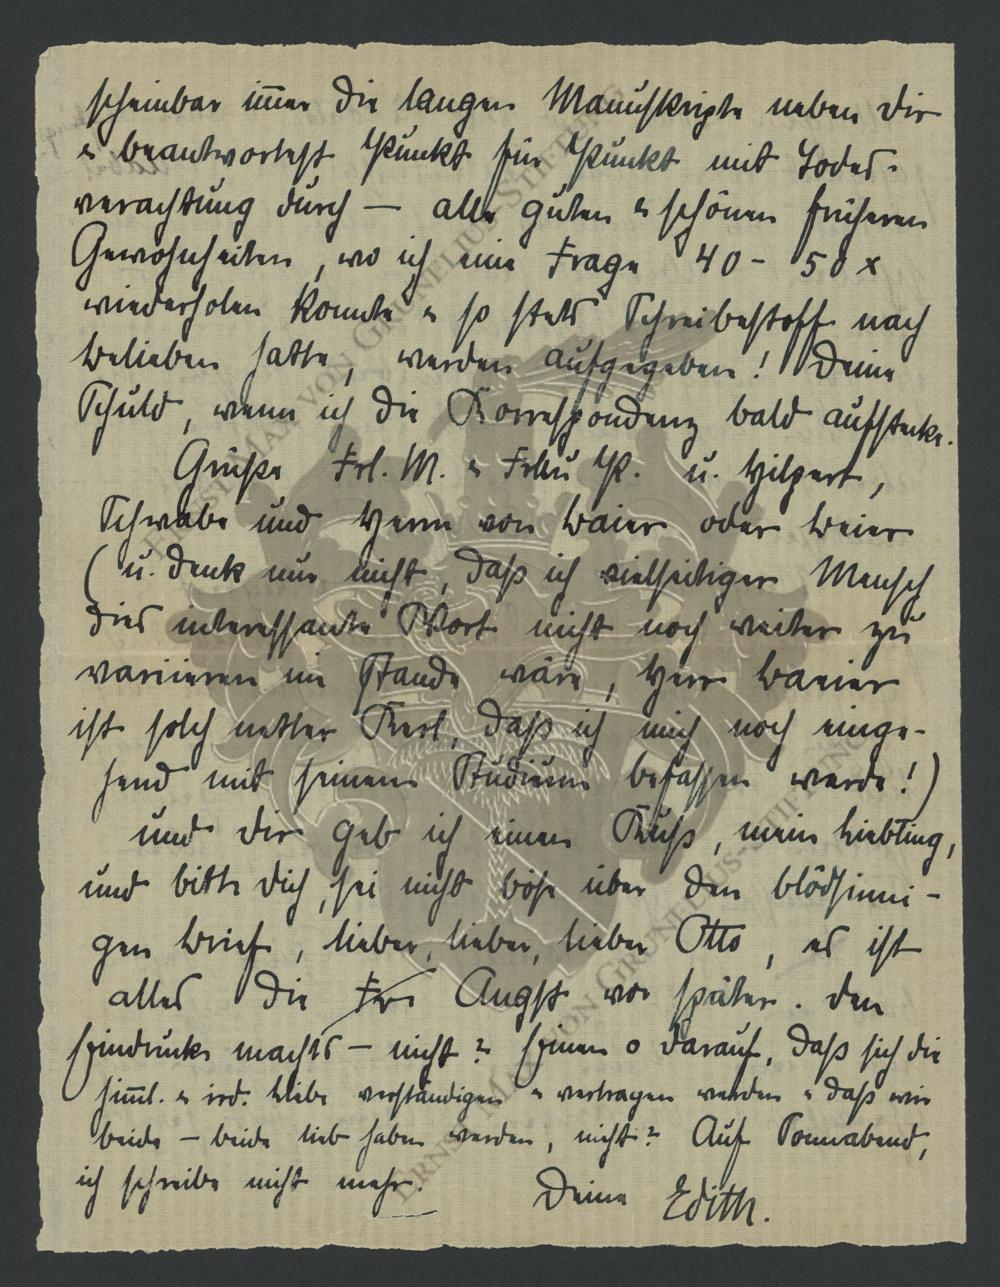 scheinbar im̄er die langen Manuskripte neben Dir
u beantwortest Punkt für Punkt mit Todes-
verachtung durch — alle guten u schönen früheren
Gewohnheiten, wo ich eine Frage 40 - 50 x
wiederholen konnte u so stets Schreibestoff nach
Belieben hatte, werden aufgegeben! Deine
Schuld, wenn ich die Korrespondenz bald aufstecke.
Grüße Frl. M. u P. u. Hilpert,
Schwabe und Herrn von Baier oder Beier
(u. denk nur nicht, daß ich vielseitiger Mensch
dies interessante Wort nicht noch weiter zu
variieren im Stande wäre, Herr Baeier
ist solch netter Kerl, daß ich mich noch einge-
hend mit seinem Studium befassen werde!)
und Dir geb ich einen Kuß, mein Liebling,
und bitte Dich, sei nicht böse über den blödsinni-
gen Brief, lieber, lieber, lieber Otto, es ist
alles die Angst vor später. Den
Eindruck machts — nicht? Einen o darauf, daß sich die
him̄l. u ird. Liebe verständigen u vertragen werden u daß wir
beide — beide lieb haben werden, nicht? Auf Sonnabend,
ich schreibe nicht mehr. Deine Edith.
ERNST MAX VON GRUNELIUS-STIFTUNG
ERNST MAX VON GRUNELIUS-STIFTUNG